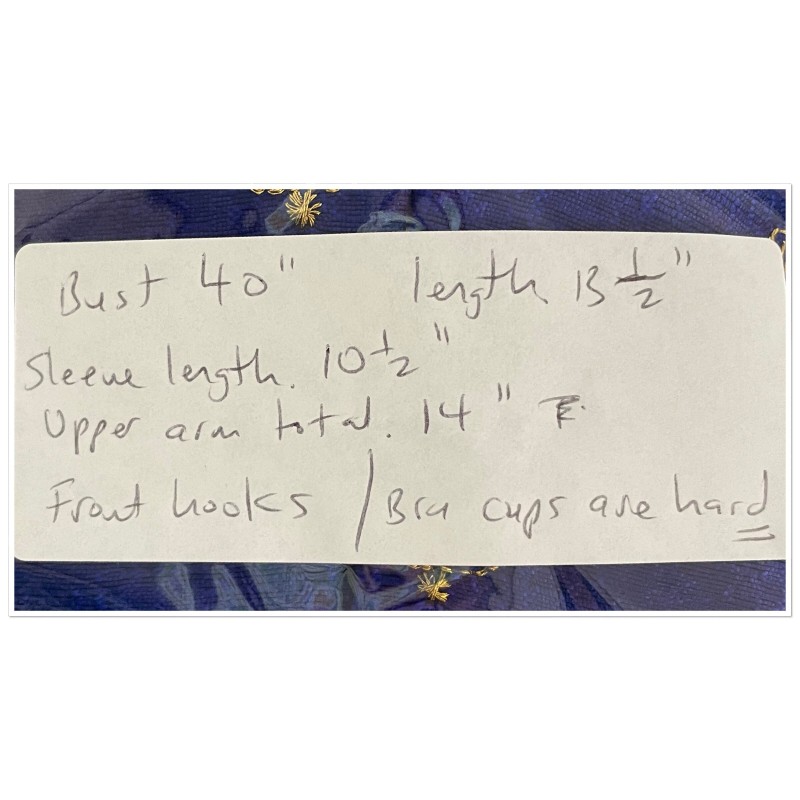 Bust 40" length 13 1/2"
Sleeve length. 10 1/2"
Upper arm total. 14"
Front hooks / Bra cups are hard